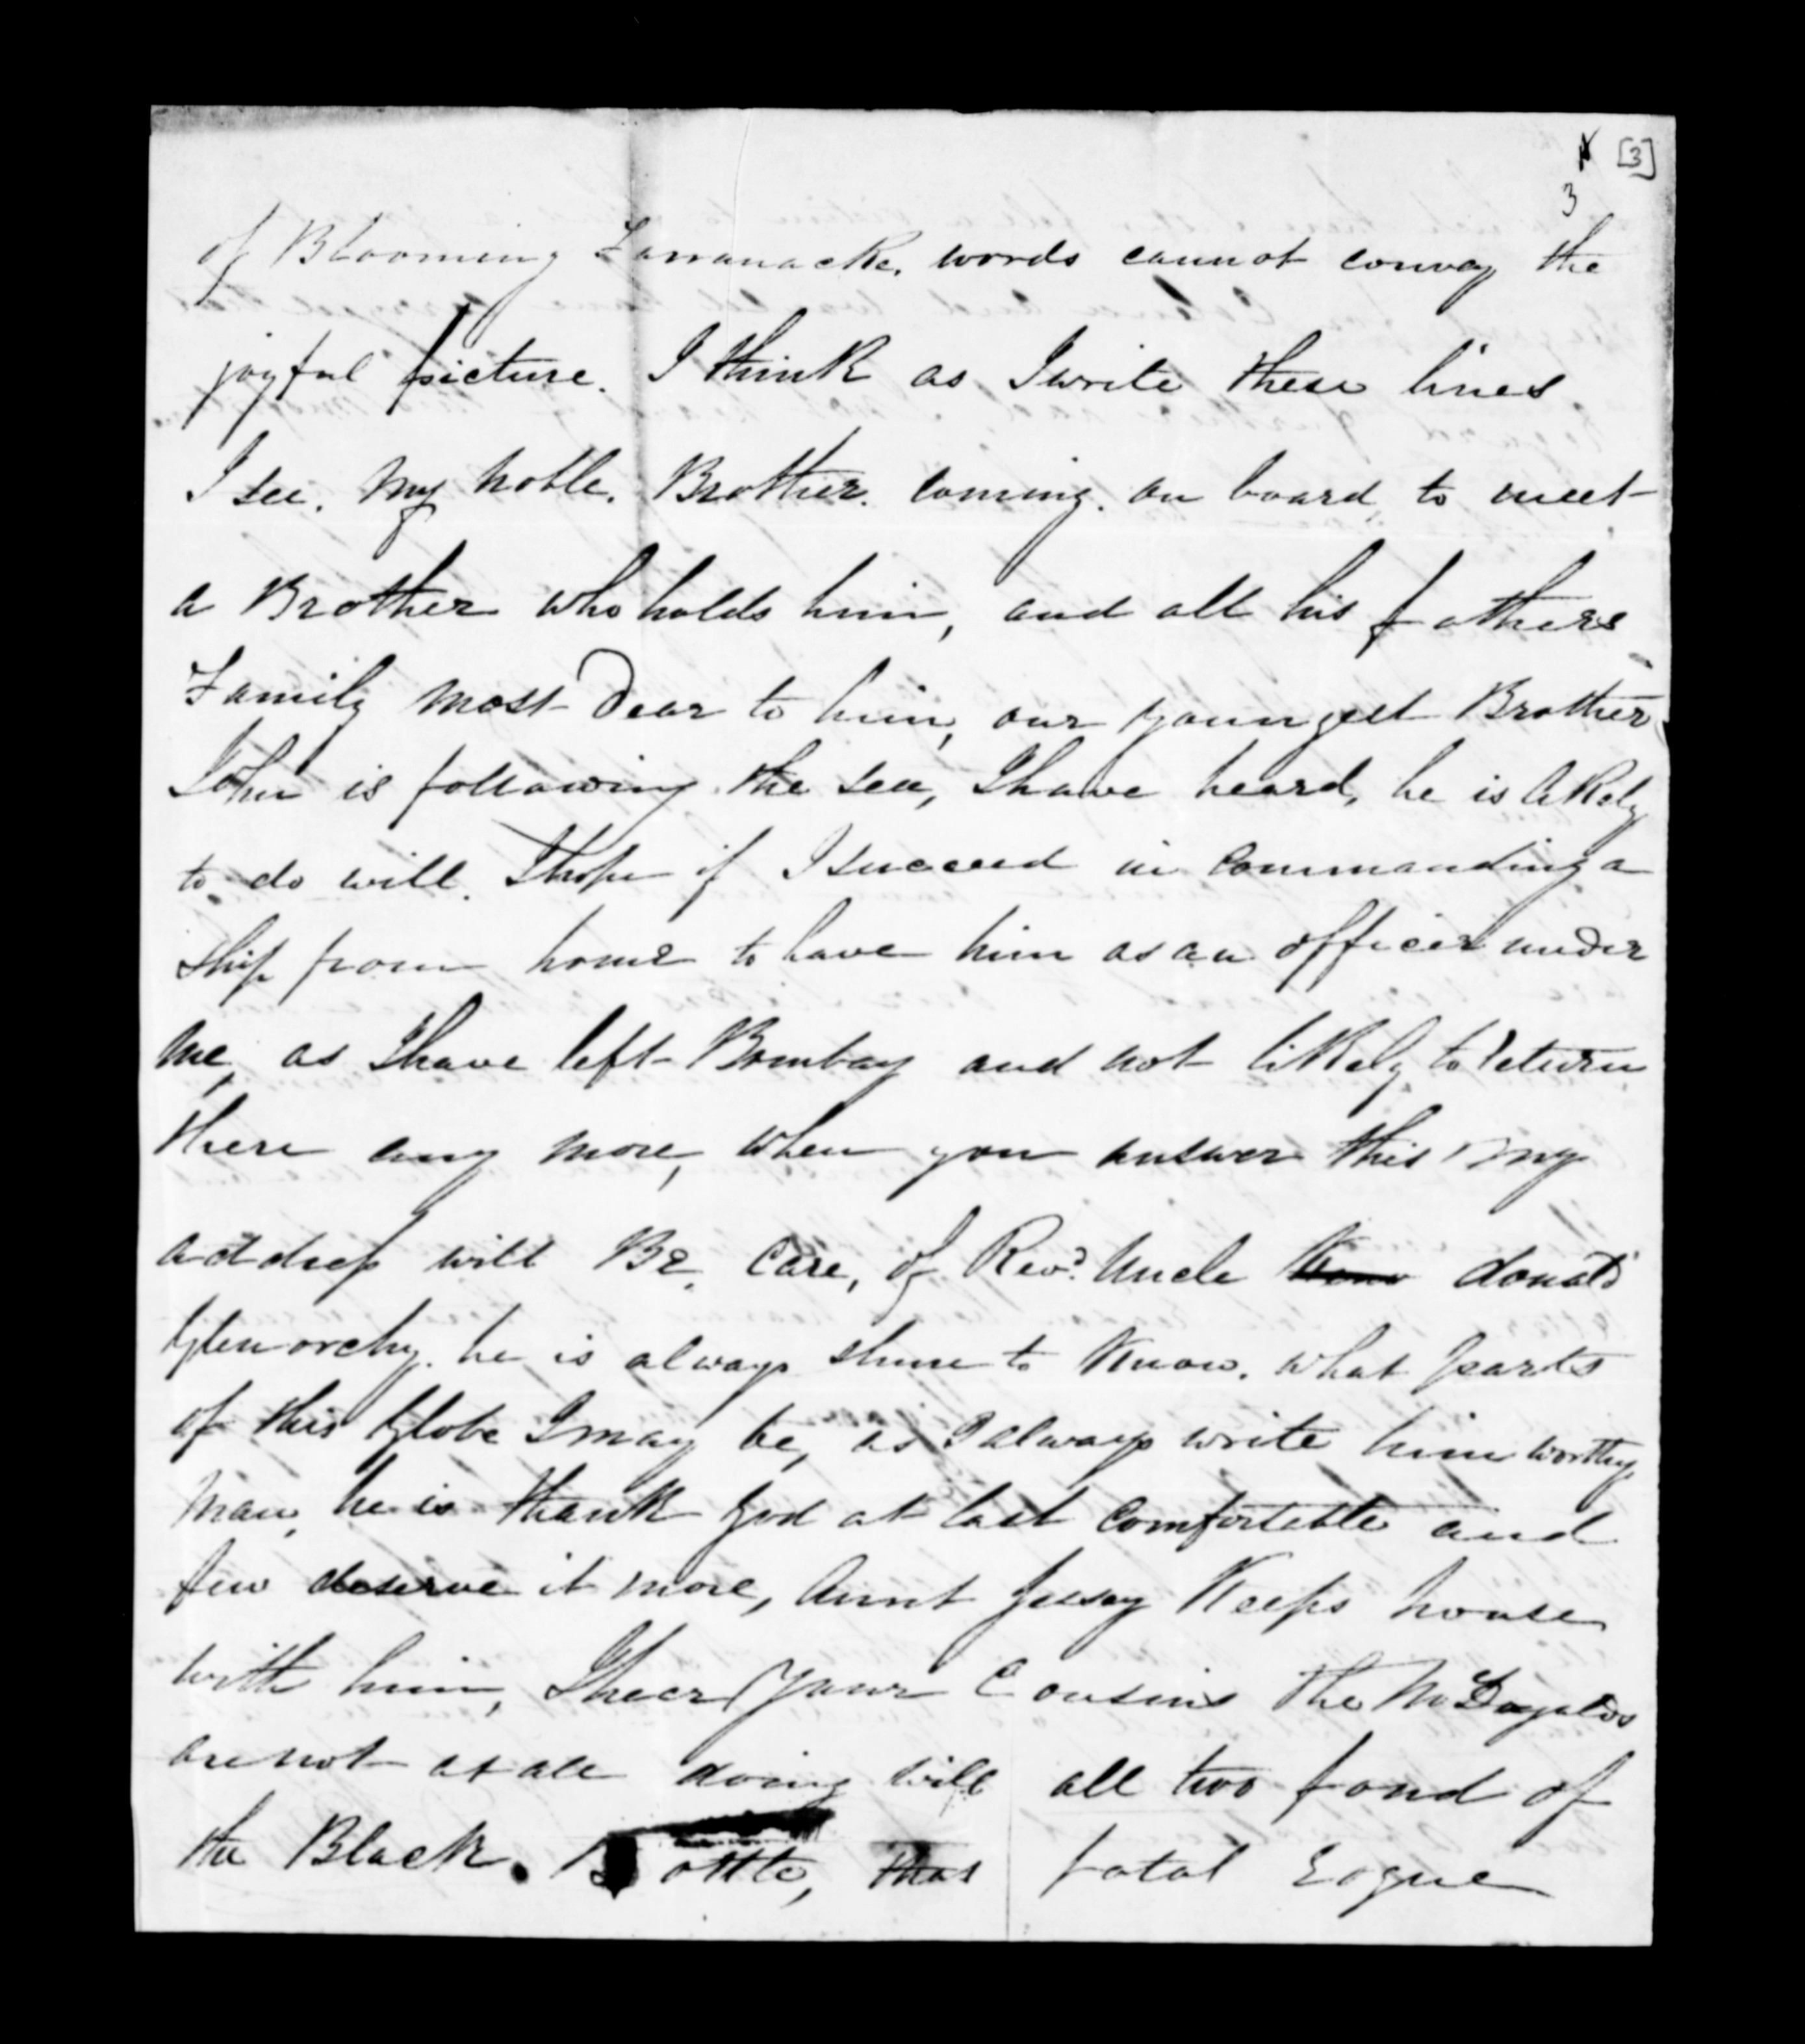 [3]
3
of Blooming Tarranacke. words cannot convay the
joyful picture. I think as I write these lines
I see. My noble. Brother. Coming. on board to meet
a Brother who holds him, and all his fathers
Family most Dear to him, our youngest Brother
John is following the sea, I have heard, he is likely
to do will. I hope if I succeed in Commanding a
ship from home to have him as an officer under
me, as I have left Bombay and not likely to return
there any more, when you answer this my
address will Be. Care, of Revd. Uncle donald
Glenorchy. he is always shure to Know. what parts
of this Globe I may be, as I always write him worthy
man, he is thank god at last Comfortable and
few deserve it more, Aunt Jessy Keeps house
with him, I hear your Cousins the McDogalds
are not at all doing will all two fond of
the Black. Bottle, that fatal Rogue